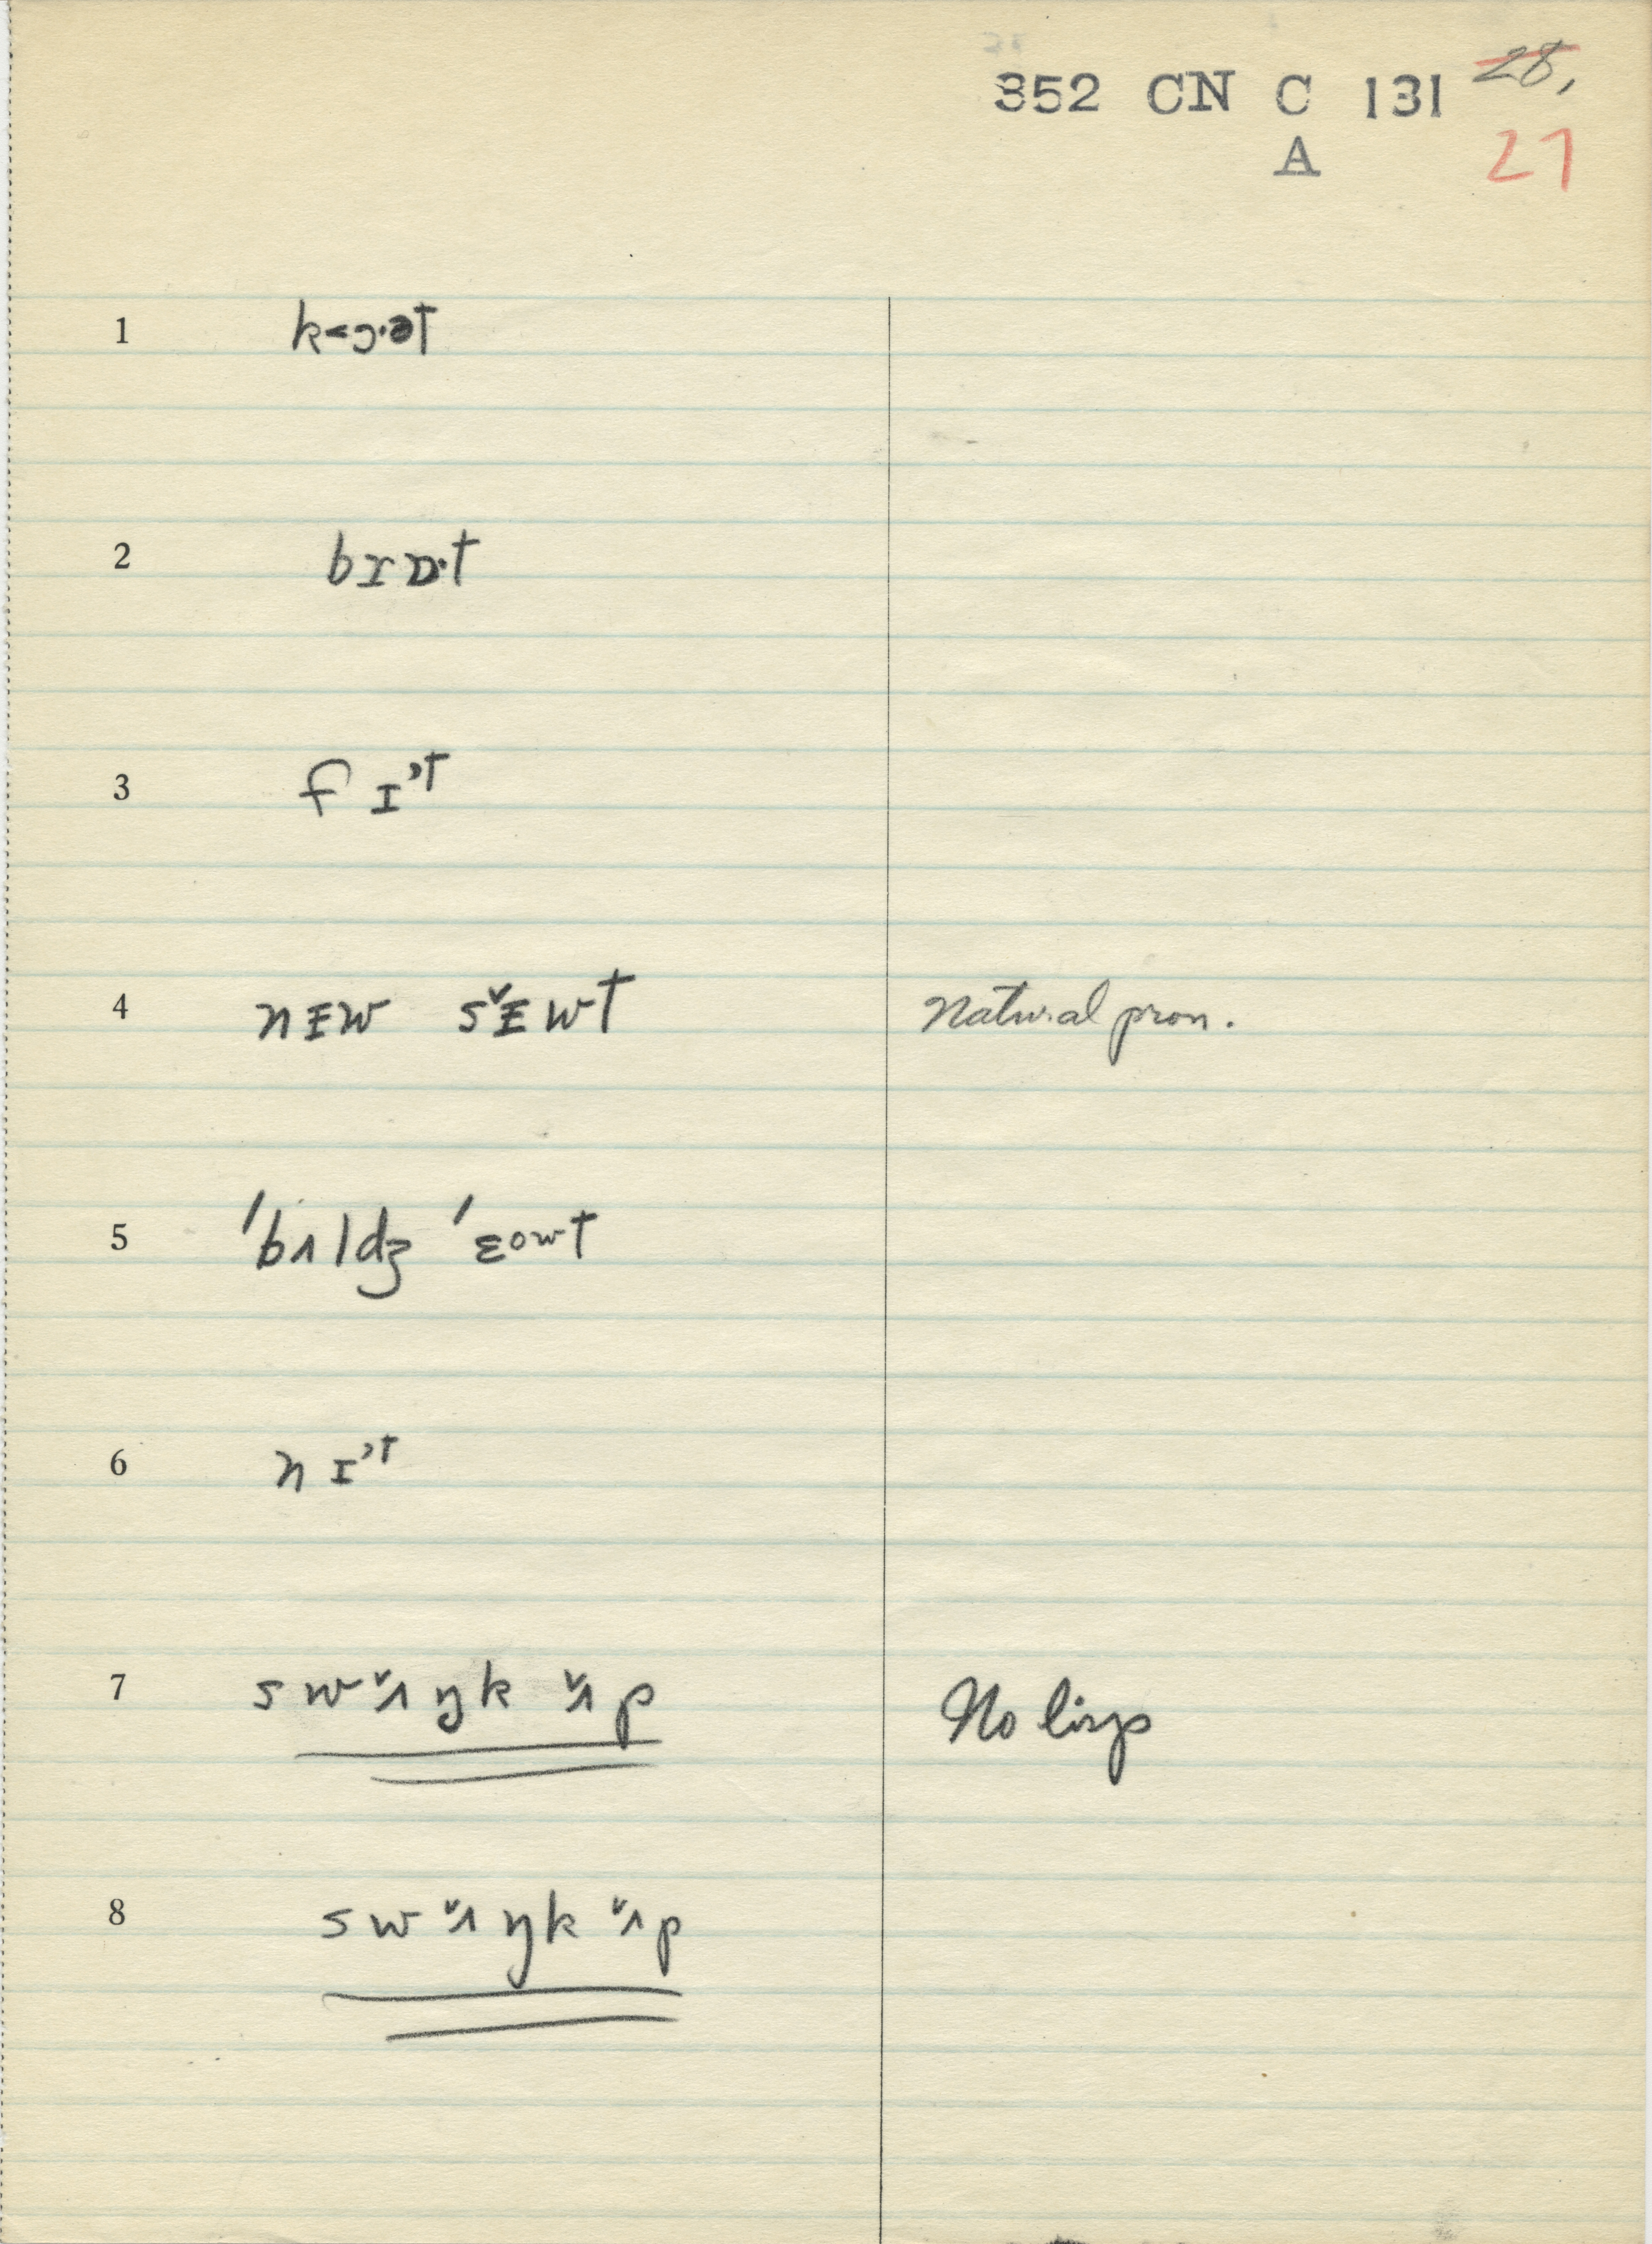 352 CN C 131 28,
A 27
1 k<ɔ·ət
2 bɪɒ·t
3 f ɪ't
4 nᴇw sˇᴇwt Natural pron.
5 'bʌldʒ 'ɛowt
6 n ɪ't
7 s w ˇʌ ŋ k ˇʌ p No lisp
8 s w ˇʌ ŋ k ˇʌ p